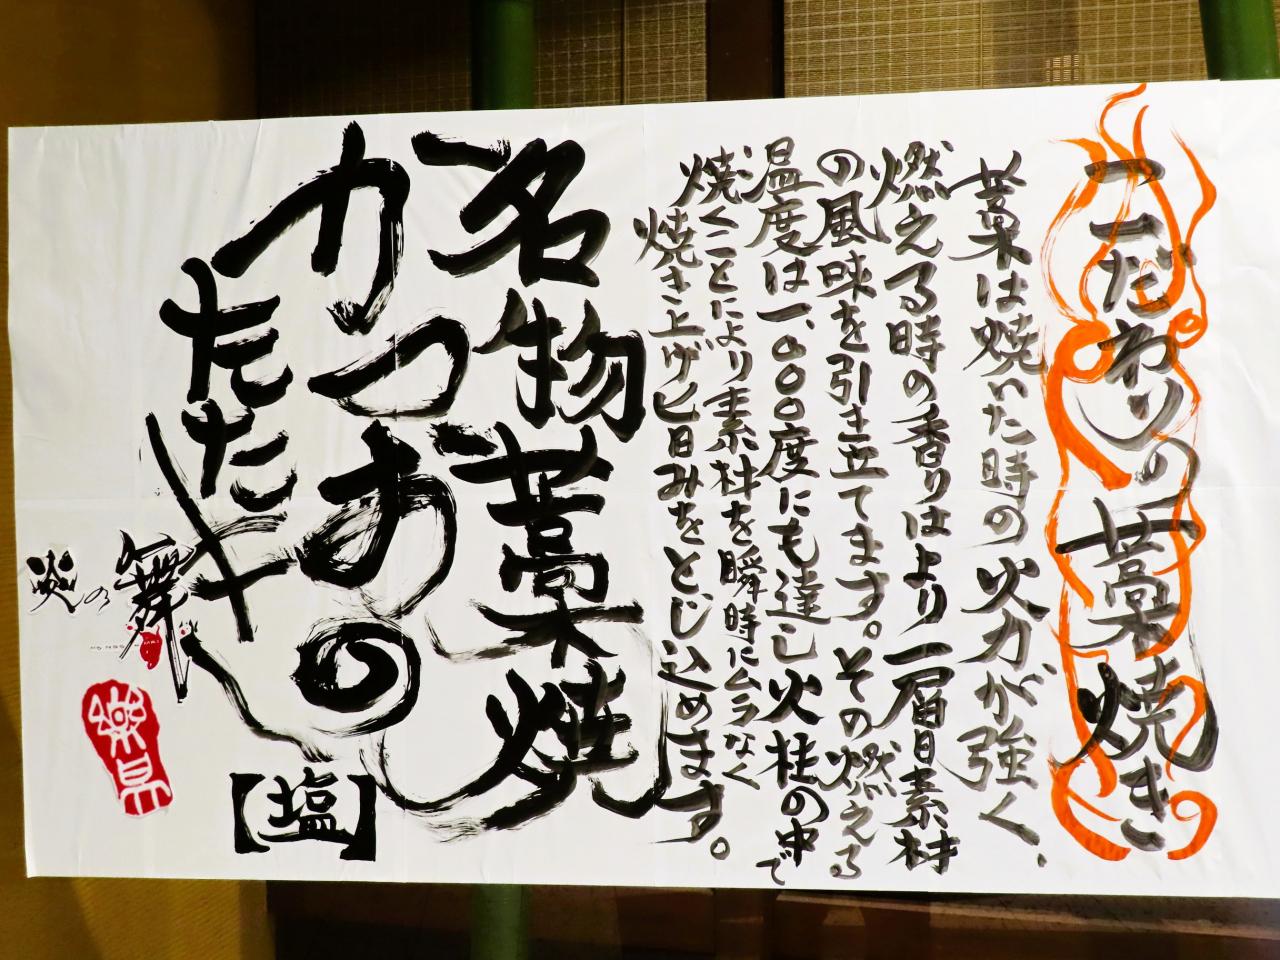 こだわりの藁焼き
藁は焼いた時の火力が強く、
燃える時の香りはより一層素材
の風味を引き立てます。その燃える
温度は一、〇〇〇度にも達し火柱の中で
焼くことにより素材を瞬時にムラなく
焼き上げ旨みをとじ込めます。
名物藁焼
かつおの
たたき
【塩】
炎の舞